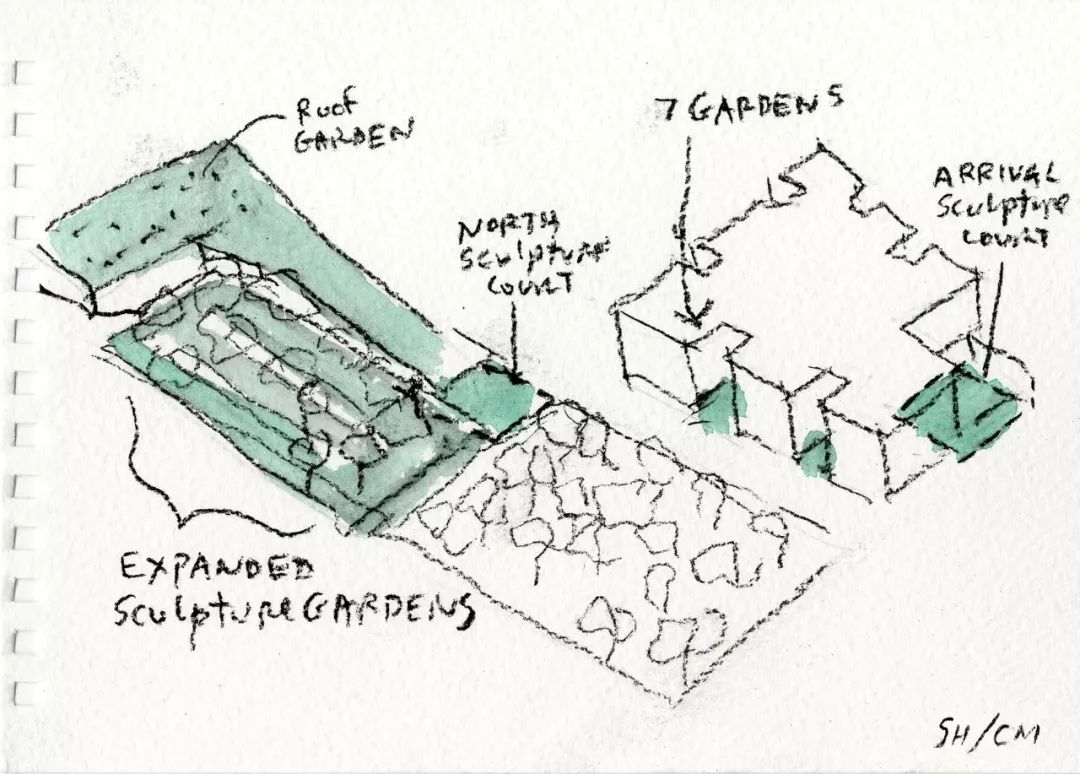 Roof
GARDEN
7 GARDENS
ARRIVAL
Sculpture
COURT
NORTH
Sculpture
COURT
EXPANDED
Sculpture GARDENS
SH/CM